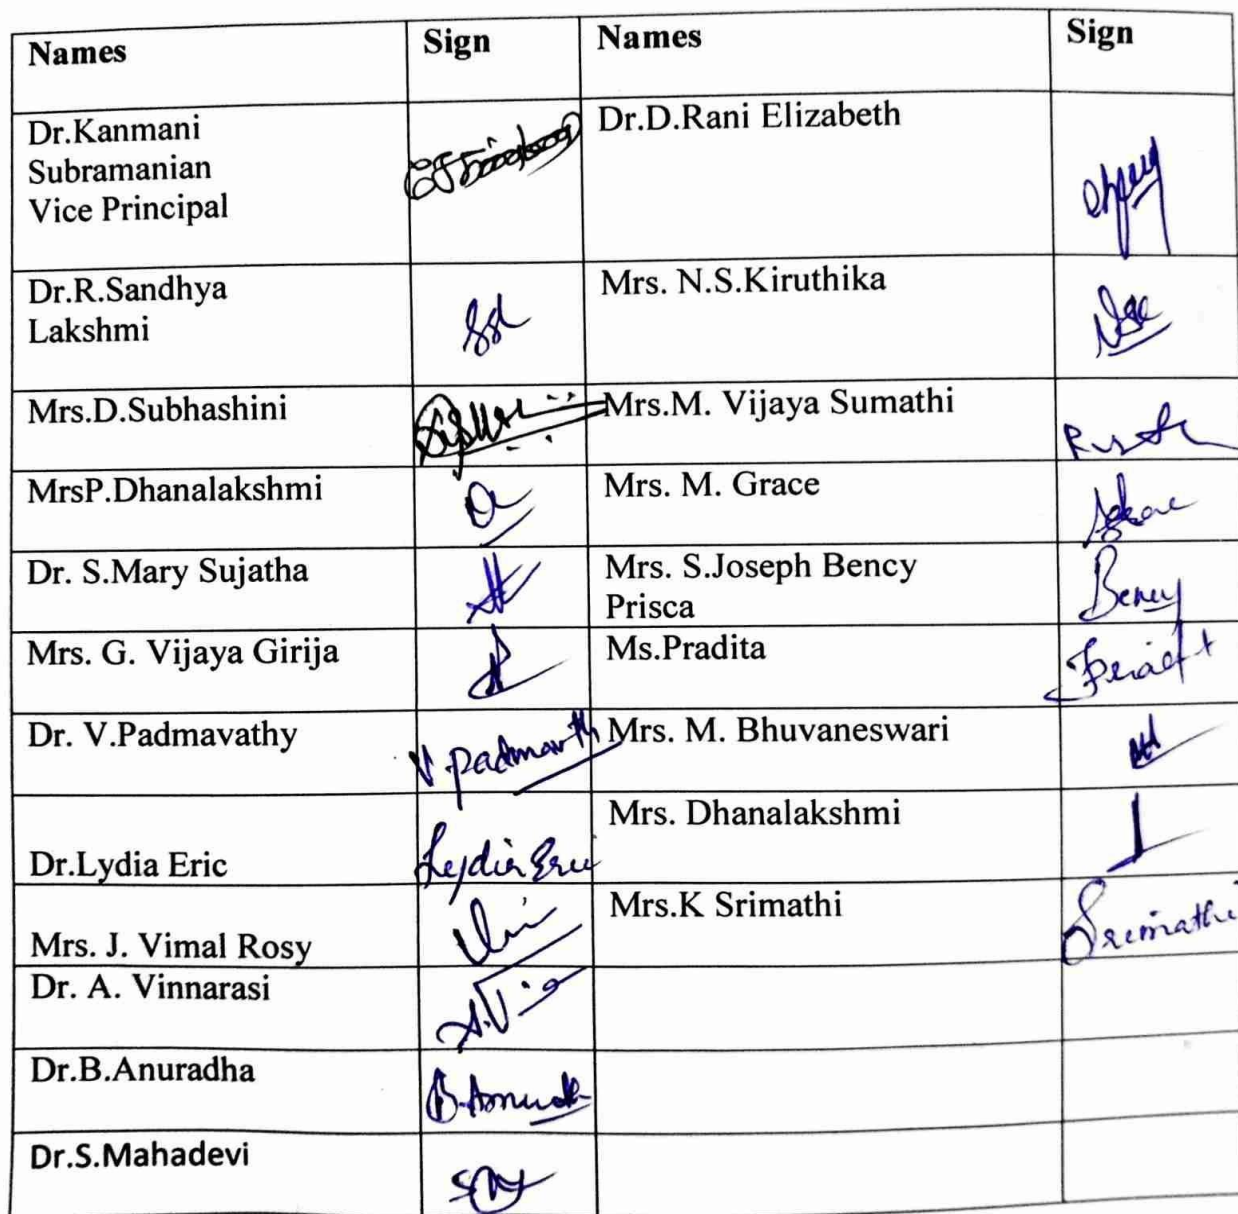 Names Sign Names Sign
Dr.Kanmani
Subramanian
Vice Principal
Dr.D.Rani Elizabeth
Dr.R.Sandhya
Lakshmi
Mrs. N.S.Kiruthika
Mrs.D.Subhashini
Mrs.M. Vijaya Sumathi
MrsP.Dhanalakshmi
Mrs. M. Grace
Dr. S.Mary Sujatha
Mrs. S.Joseph Bency
Prisca
Bency
Mrs. G. Vijaya Girija
Ms.Pradita
Dr. V.Padmavathy
Mrs. M. Bhuvaneswari
Dr.Lydia Eric
Lydia Eric
Mrs. Dhanalakshmi
Mrs. J. Vimal Rosy
Mrs.K Srimathi
Srimathi
Dr. A. Vinnarasi
Dr.B.Anuradha
Dr.S.Mahadevi